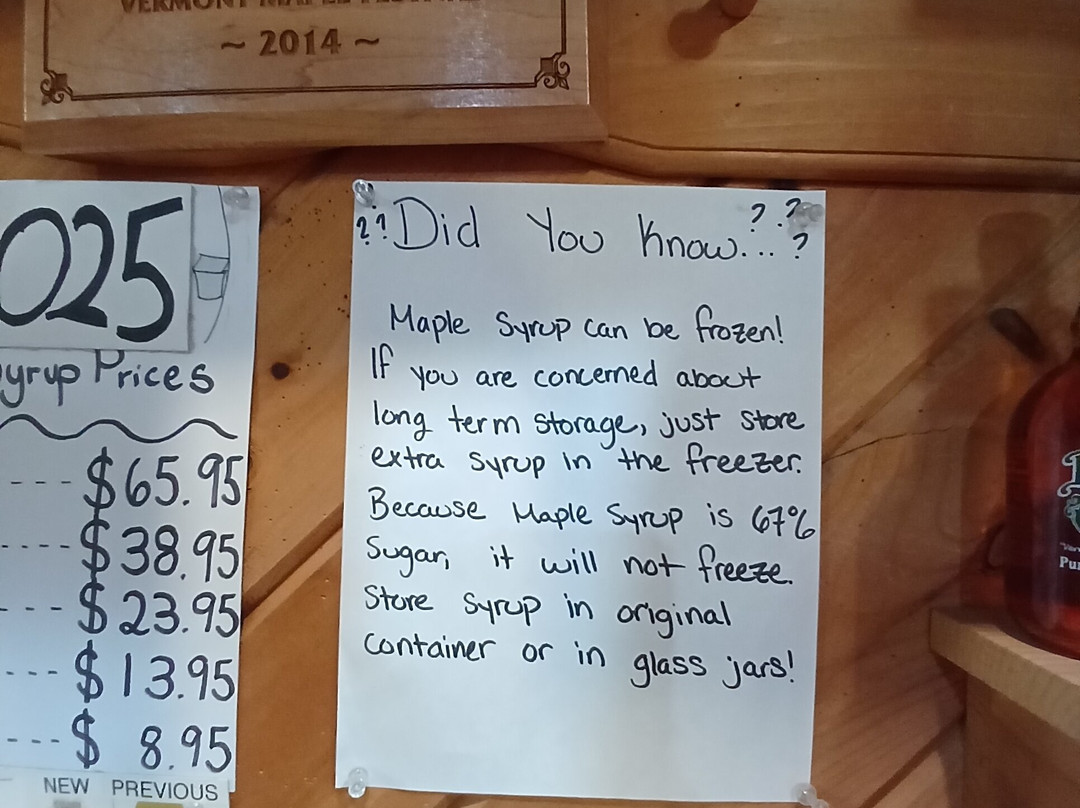 VERMONT MAPLE FESTIVAL
~ 2014 ~
025
yrup Prices
---- $65.95
---- $38.95
--- $23.95
--- $13.95
--- $ 8.95
NEW PREVIOUS
?? Did You Know...???
Maple Syrup can be frozen!
If you are concerned about
long term storage, just store
extra syrup in the freezer.
Because Maple Syrup is 67%
Sugar, it will not freeze.
Store syrup in original
container or in glass jars!